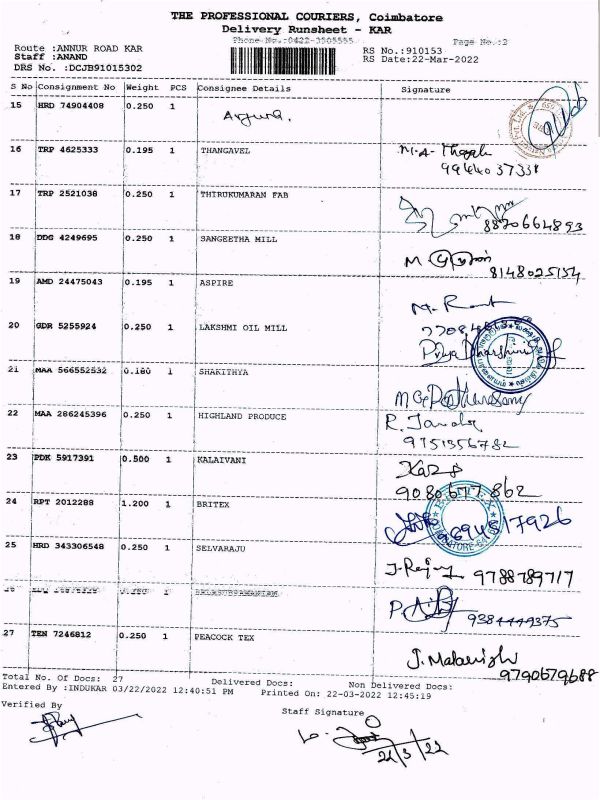 THE PROFESSIONAL COURIERS, Coimbatore
Delivery Runsheet - KAR
Phone No.:0422-3505555 Page No.:2
Route :ANNUR ROAD KAR RS No.:910153
Staff :ANAND RS Date:22-Mar-2022
DRS No. :DCJB91015302
S No Consignment No Weight PCS Consignee Details Signature
15 HRD 74904408 0.250 1
16 TRP 4625333 0.195 1 THANGAVEL M.A-
9944037331
17 TRP 2521038 0.250 1 THIRUKUMARAN FAB
8870664893
18 DDG 4249695 0.250 1 SANGEETHA MILL M
8148025154
19 AMD 24475043 0.195 1 ASPIRE
20 GDR 5255924 0.250 1 LAKSHMI OIL MILL
21 MAA 566552532 0.180 1 SHAKITHYA
22 MAA 286245396 0.250 1 HIGHLAND PRODUCE
9751356782
23 PDK 5917391 0.500 1 KALAIVANI
9080677862
24 RPT 2012288 1.200 1 BRITEX
9694817926
25 HRD 343306548 0.250 1 SELVARAJU
9788789717
26 1 BALASUBRAMANIAM
9384449375
27 TEN 7246812 0.250 1 PEACOCK TEX
9790679688
Total No. Of Docs: 27 Delivered Docs: Non Delivered Docs:
Entered By :INDUKAR 03/22/2022 12:40:51 PM Printed On: 22-03-2022 12:45:19
Verified By Staff Signature
22/3/22